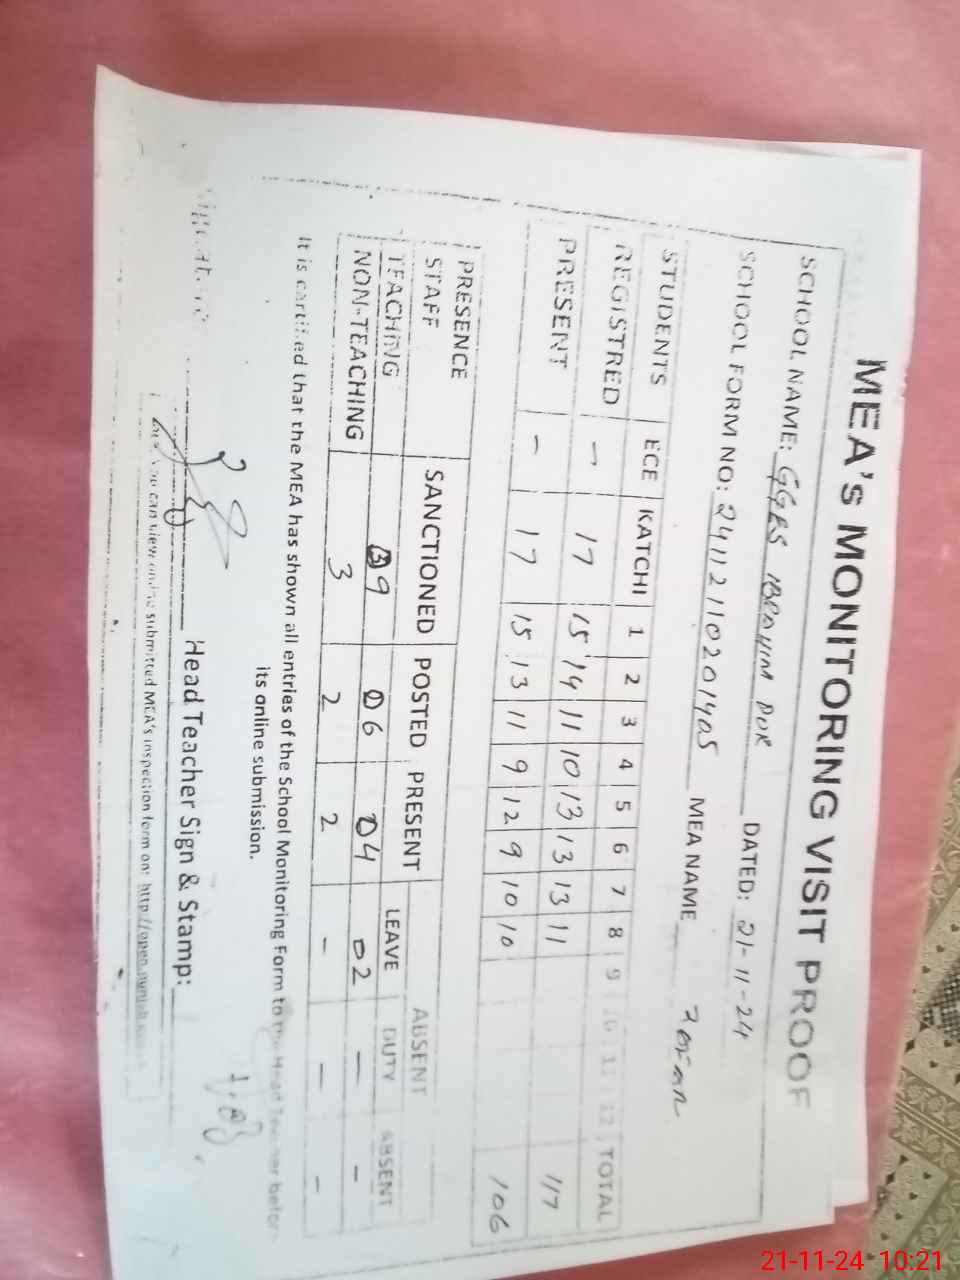 MEA's MONITORING VISIT PROOF
SCHOOL NAME: GGES IBRAHIM DOR DATED: 21-11-24
SCHOOL FORM NO: MEA NAME
STUDENTS ECE KATCHI 1 2 3 4 5 6 7 8 9 10 11 12 TOTAL
REGISTRED - 17 15 14 11 10 13 13 13 11 117
PRESENT - 17 15 13 11 9 12 9 10 10 106
PRESENCE SANCTIONED POSTED PRESENT ABSENT
STAFF LEAVE DUTY ABSENT
TEACHING 9 06 04 02 - -
NON-TEACHING 3 2 2 - - -
It is certified that the MEA has shown all entries of the School Monitoring Form to the Head Teacher before
its online submission.
Head Teacher Sign & Stamp:
you can view online submitted MEA's inspection form on: http://open.punjab
21-11-24 10:21